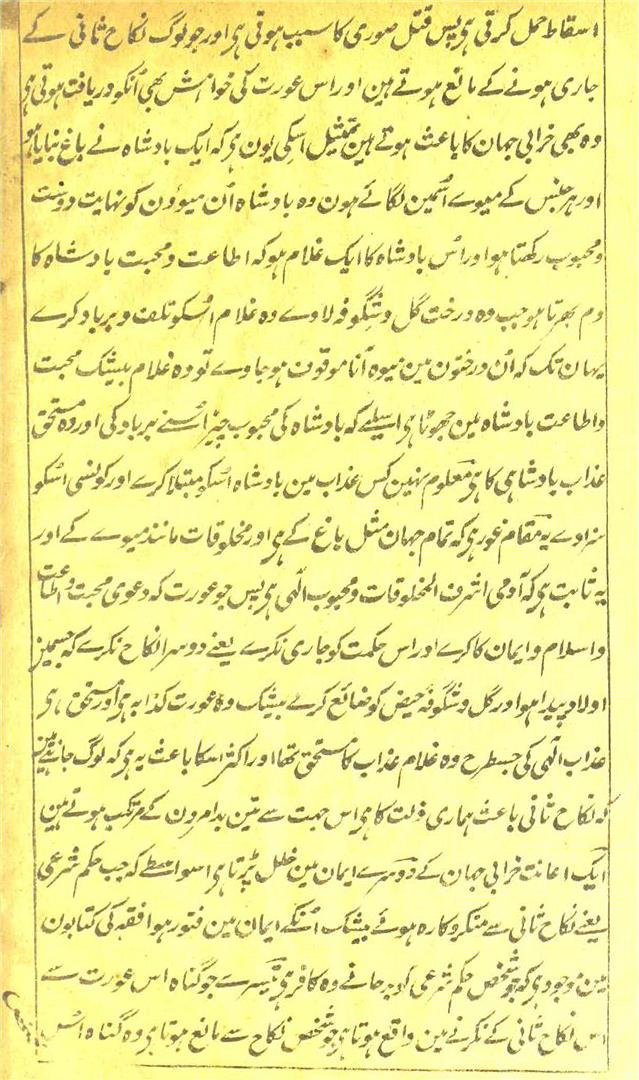 اسقاط حمل کرتی ہی پس قتل صوری کا سبب ہوتی ہی اور جو لوگ نکاح ثانی کے
جاری ہونے کے مانع ہوتے ہین اور اس عورت کی خواہش بھی اُنکو دریافت ہوتی ہی
وہ بھی خرابی جہان کا باعث ہوتے ہین تمثیل اسکی یون ہی کہ ایک بادشاہ نے باغ بنایا ہو
اور ہر جنس کے میوے اُسمین لگائے ہون وہ بادشاہ اُن میوون کو نہایت دوست
و محبوب رکھتا ہو اور اُس بادشاہ کا ایک غلام ہو کہ اطاعت و محبت بادشاہ کا
دم بھرتا ہو جب وہ درخت گل و شگوفہ لاوے وہ غلام اُسکو تلف و برباد کرے
یہان تک کہ اُن درختون مین میوہ آنا موقوف ہو جاوے تو وہ غلام بیشک محبت
و اطاعت بادشاہ مین جھوٹا ہی اسلیے کہ بادشاہ کی محبوب چیز اُسنے برباد کی اور وہ مستحق
عذاب بادشاہی کا ہی معلوم نہین کس عذاب مین بادشاہ اُسکو مبتلا کرے اور کونسی اُسکو
سزا دے یہ مقام غور ہی کہ تمام جہان مثل باغ کے ہی اور مخلوقات مانند میوے کے اور
یہ ثابت ہی کہ آدمی اشرف المخلوقات و محبوب الٰہی ہی پس جو عورت کہ دعوی محبت و اطاعت
و اسلام و ایمان کا کرے اور اس حکمت کو جاری نکرے یعنے دوسرا نکاح نکرے کہ جسمین
اولاد پیدا ہو اور گل و شگوفہ حیض کو ضائع کرے بیشک وہ عورت کذابہ ہی اور مستحق ہی
عذاب الٰہی کی جسطرح وہ غلام عذاب کا مستحق تھا اور اکثر اسکا باعث یہ ہی کہ لوگ جانتے ہین
کہ نکاح ثانی باعث ہماری ذلت کا ہی اس جہت سے تین بد امرون کے مرتکب ہوتے ہین
ایک اعانت خرابی جہان کے دوسرے ایمان مین خلل پڑتا ہی اسواسطے کہ جب حکم شرعی
یعنے نکاح ثانی سے منکر و کارہ ہوئے بیشک اُنکے ایمان مین فتور ہوا فقہ کی کتابون
مین موجود ہی کہ جو شخص حکم شرعی کو بد جانے وہ کافر ہی تیسرے جو گناہ اس عورت سے
اس نکاح ثانی کے نکرنے مین واقع ہوتا ہی جو شخص نکاح سے مانع ہوتا ہی وہ گناہ اُس